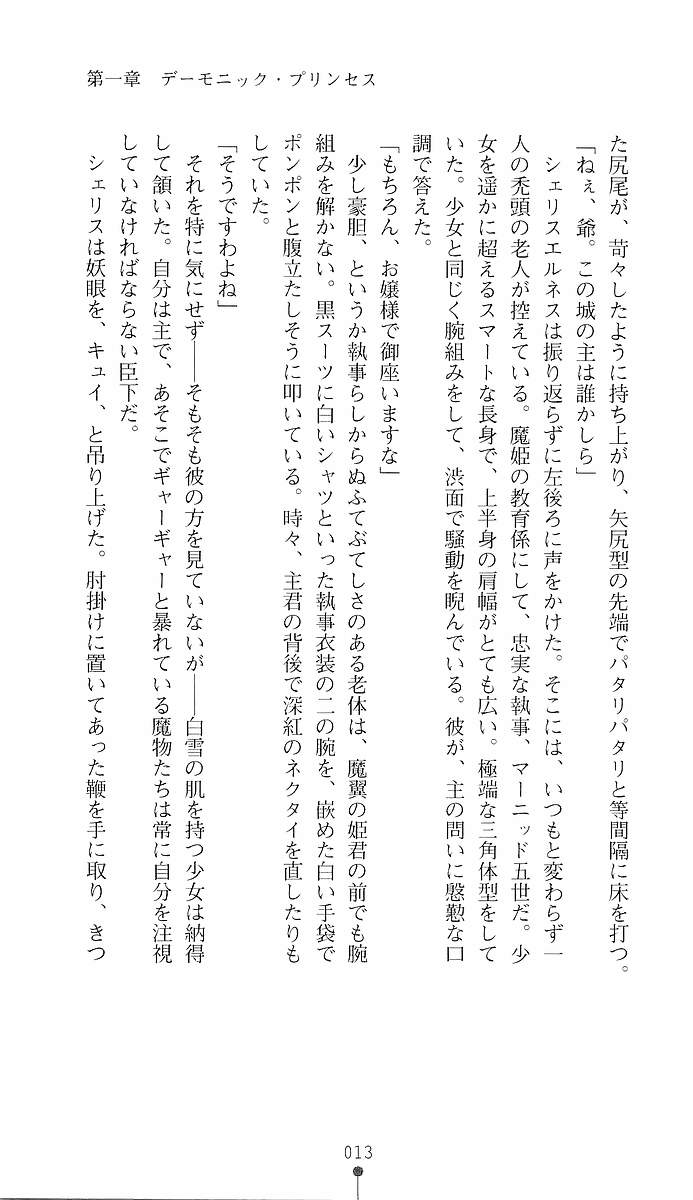 第一章　デーモニック・プリンセス
た尻尾が、苛々したように持ち上がり、矢尻型の先端でパタリパタリと等間隔に床を打つ。
「ねぇ、爺。この城の主は誰かしら」
　シェリスエルネスは振り返らずに左後ろに声をかけた。そこには、いつもと変わらず一
人の禿頭の老人が控えている。魔姫の教育係にして、忠実な執事、マーニッド五世だ。少
女を遥かに超えるスマートな長身で、上半身の肩幅がとても広い。極端な三角体型をして
いた。少女と同じく腕組みをして、渋面で騒動を睨んでいる。彼が、主の問いに慇懃な口
調で答えた。
「もちろん、お嬢様で御座いますな」
　少し豪胆、というか執事らしからぬふてぶてしさのある老体は、魔翼の姫君の前でも腕
組みを解かない。黒スーツに白いシャツといった執事衣装の二の腕を、嵌めた白い手袋で
ポンポンと腹立たしそうに叩いている。時々、主君の背後で深紅のネクタイを直したりも
していた。
「そうですわよね」
　それを特に気にせず――そもそも彼の方を見ていないが――白雪の肌を持つ少女は納得
して頷いた。自分は主で、あそこでギャーギャーと暴れている魔物たちは常に自分を注視
していなければならない臣下だ。
　シェリスは妖眼を、キュイ、と吊り上げた。肘掛けに置いてあった鞭を手に取り、きつ
013